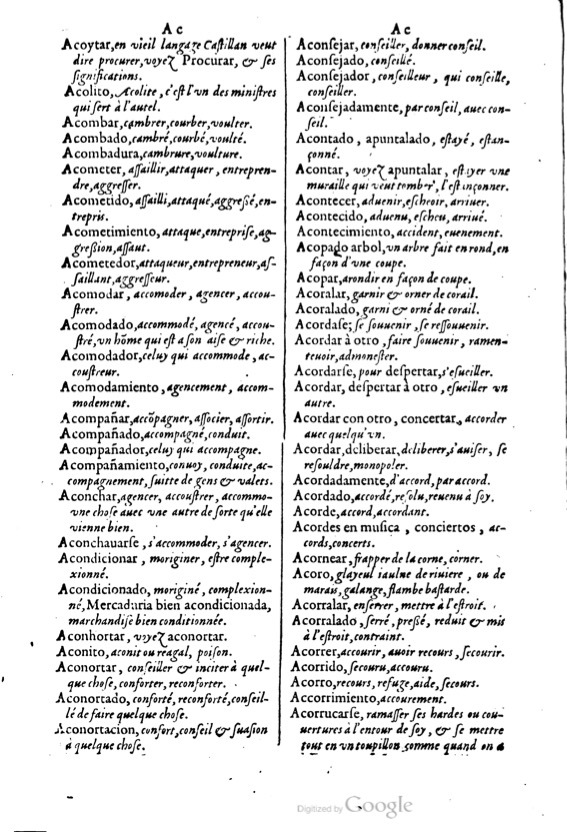 A c
Acoytar, en vieil langage Castillan veut
dire procurer, voyez Procurar, & ses
significations.
Acolito, Acolite, c'est l'vn des ministres
qui sert à l'autel.
Acombar, cambrer, courber, voulter.
Acombado, cambré, courbé, voulté.
Acombadura, cambrure, voulture.
Acometer, assaillir, attaquer, entrepren-
dre, aggresser.
Acometido, assailli, attaqué, aggressé, en-
trepris.
Acometimiento, attaque, entreprise, ag-
gression, assaut.
Acometedor, attaqueur, entrepreneur, as-
saillant, aggresseur.
Acomodar, accomoder, agencer, accou-
strer.
Acomodado, accommodé, agencé, accou-
stré, vn hõme qui est a son aise & riche.
Acomodador, celuy qui accommode, ac-
coustreur.
Acomodamiento, agencement, accom-
modement.
Acompañar, accõpagner, associer, assortir.
Acompañado, accompagné, conduit.
Acompañador, celuy qui accompagne.
Acompañamiento, convoy, conduite, ac-
compagnement, suitte de gens & valets.
Aconchar, agencer, accoustrer, accommo-
vne chose auec vne autre de sorte qu'elle
vienne bien.
Aconchauarse, s'accommoder, s'agencer.
Acondicionar, moriginer, estre comple-
xionné.
Acondicionado, moriginé, complexion-
né, Mercaduria bien acondicionada,
marchandise bien conditionnée.
Aconhortar, voyez aconortar.
Aconito, aconit ou reagal, poison.
Aconortar, conseiller & inciter à quel-
que chose, conforter, reconforter.
Aconortado, conforté, reconforté, conseil-
lé de faire quelque chose.
Aconortacion, confort, conseil & suasion
à quelque chose.
A c
Aconsejar, conseiller, donner conseil.
Aconsejado, conseillé.
Aconsejador, conseilleur, qui conseille,
conseiller.
Aconsejadamente, par conseil, auec con-
seil.
Acontado, apuntalado, estayé, estan-
çonné.
Acontar, voyez apuntalar, estayer vne
muraille qui veut tomber, l'estançonner.
Acontecer, aduenir, escheoir, arriuer.
Acontecido, aduenu, escheu, arriué.
Acontecimiento, accident, euenement.
Acopado arbol, vn arbre fait en rond, en
façon d'vne coupe.
Acopar, arondir en façon de coupe.
Acoralar, garnir & orner de corail.
Acoralado, garni & orné de corail.
Acordase; se souuenir, se ressouuenir.
Acordar à otro, faire souuenir, ramen-
teuoir, admonester.
Acordarse, pour despertar, s'esueiller.
Acordar, despertar à otro, esueiller vn
autre.
Acordar con otro, concertar, accorder
auec quelqu'vn.
Acordar, deliberar, deliberer, s'auiser, se
resouldre, monopoler.
Acordadamente, d'accord, par accord.
Acordado, accordé, resolu, reuenu à soy.
Acorde, accord, accordant.
Acordes en musica, conciertos, ac-
cords, concerts.
Acornear, frapper de la corne, corner.
Acoro, glayeul iaulne de riuiere, ou de
marass, galange, flambe bastarde.
Acorralar, enserrer, mettre à l'estroit.
Acorralado, serré, pressé, reduit & mis
à l'estroit, contraint.
Acorrer, accourir, auoir recours, secourir.
Acorrido, secouru, accouru.
Acorro, recours, refuge, aide, secours.
Accorrimiento, accourement.
Acorrucarse, ramasser ses hardes ou cou-
uertures à l'entour de soy, & se mettre
tout en vn toupillon comme quand on a
Digitized by Google